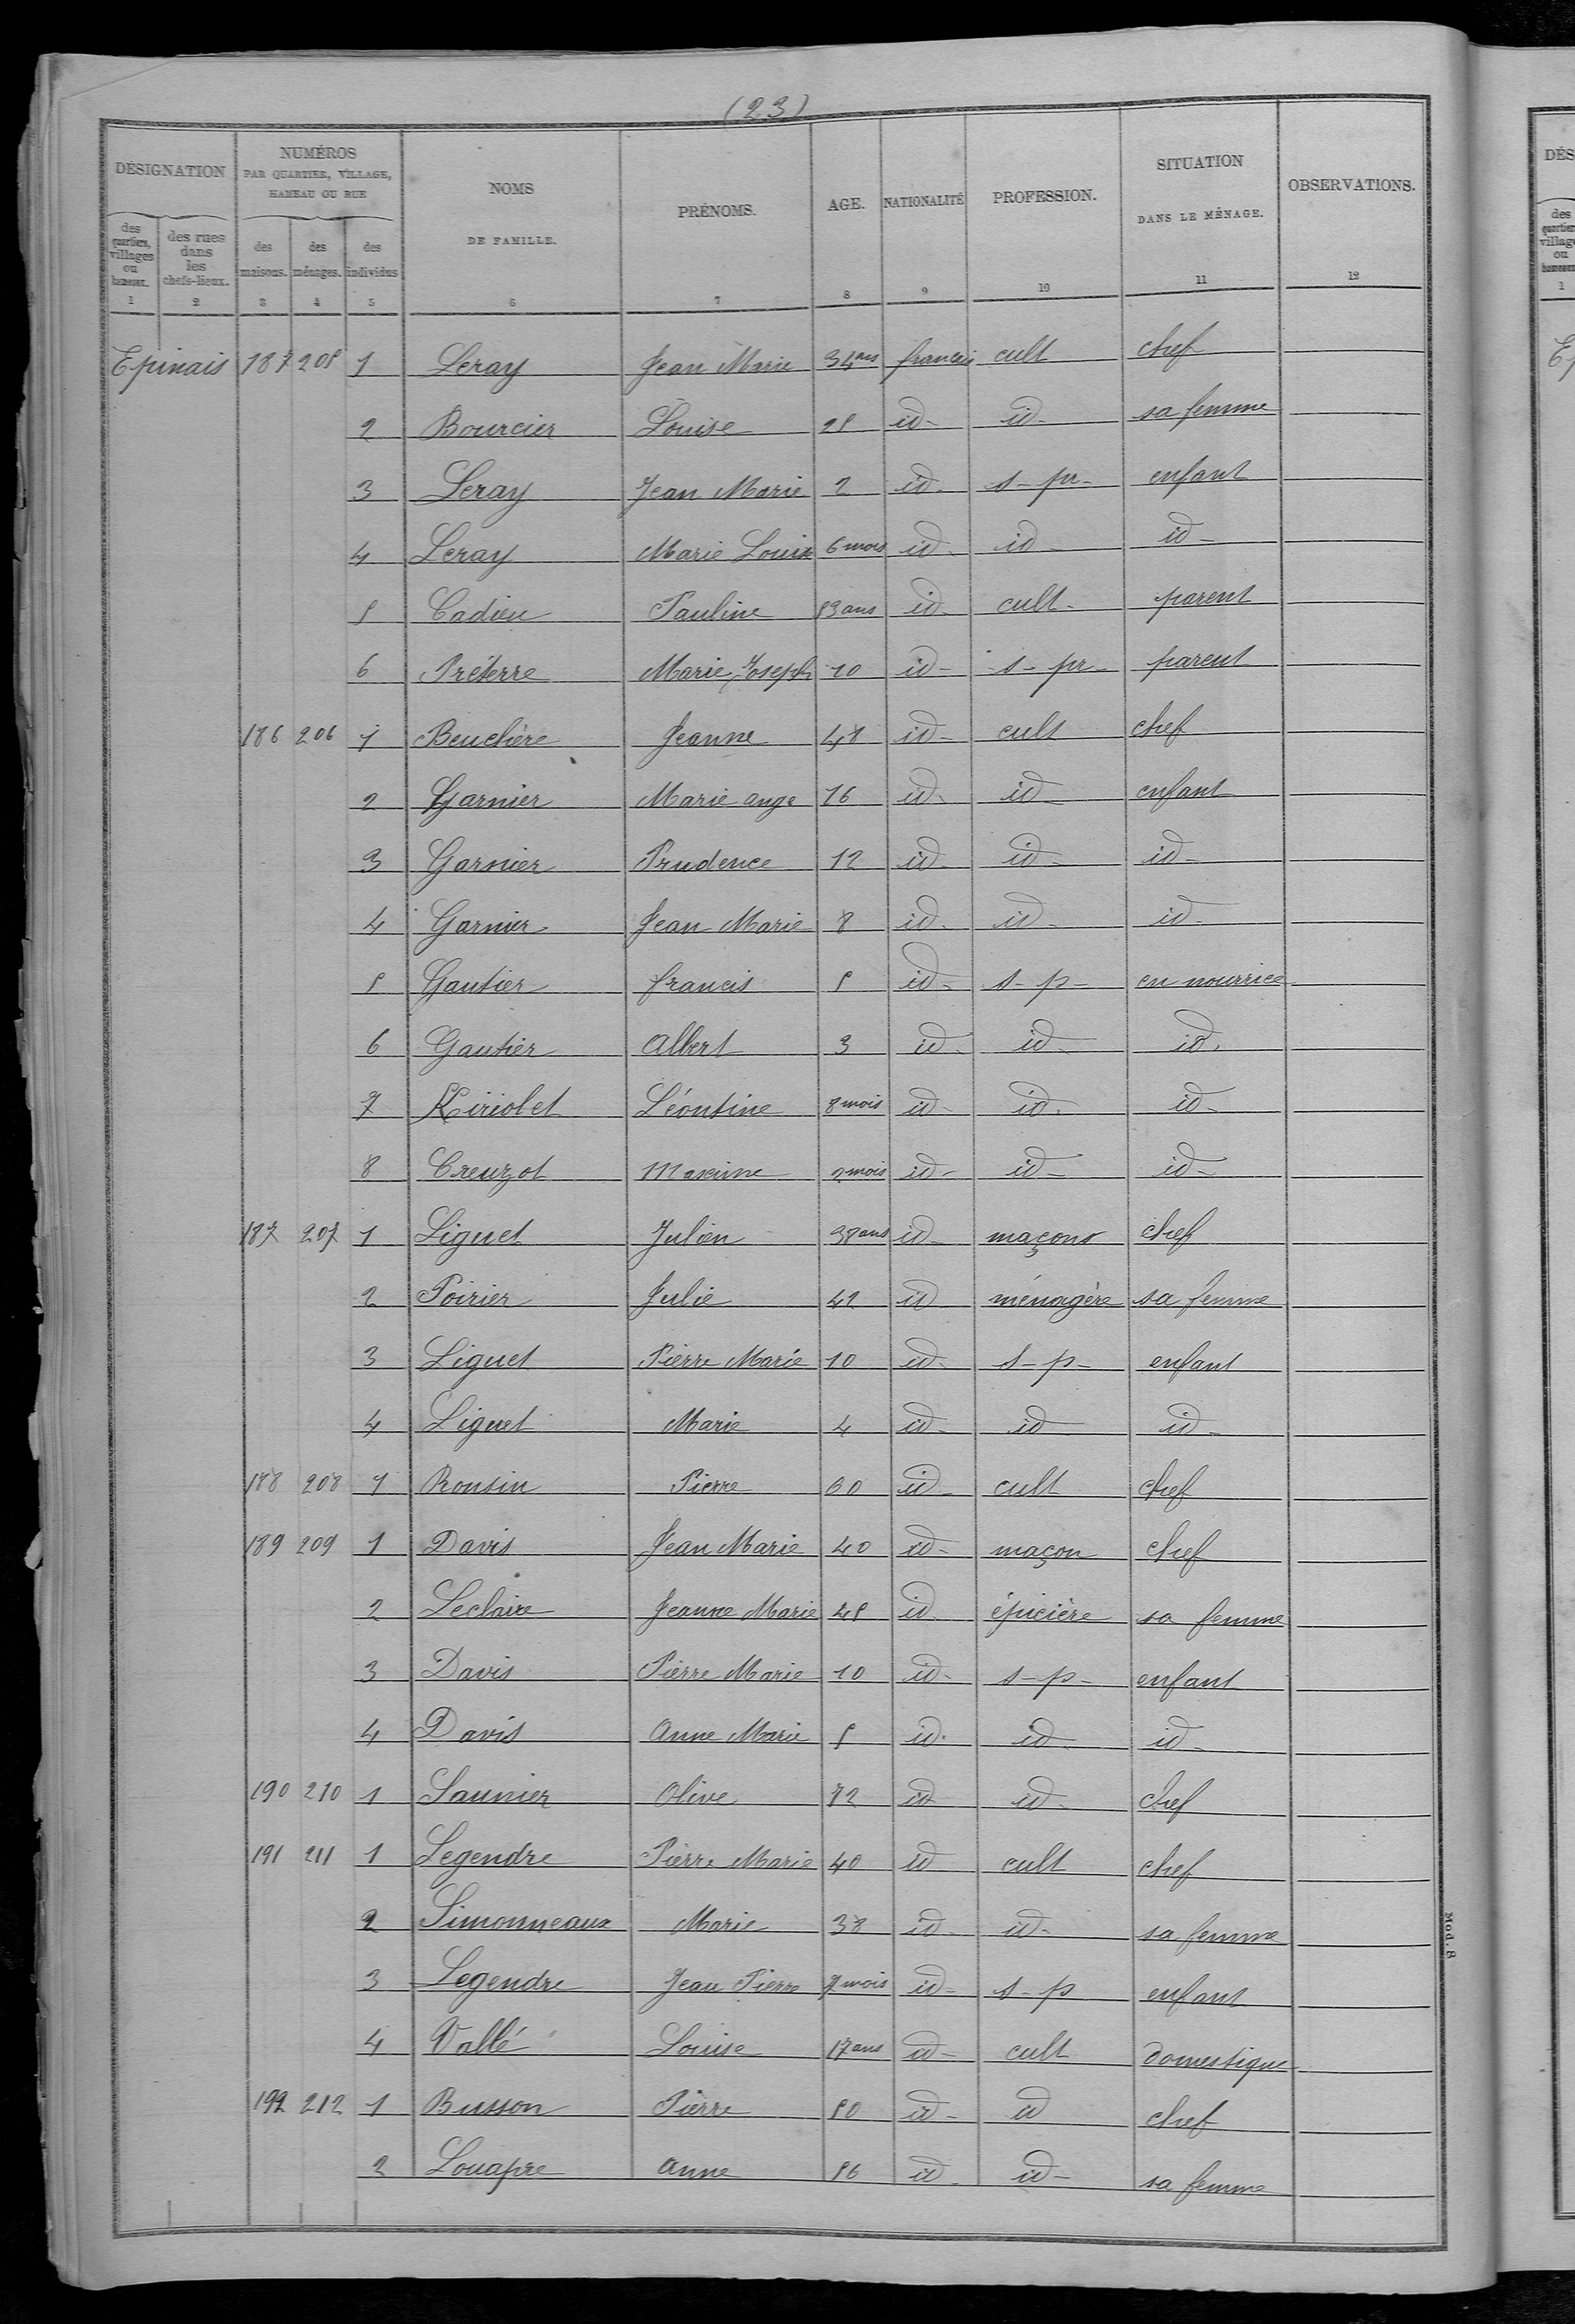 (23)
DÉSIGNATION
NUMÉROS
PAR QUARTIER, VILLAGE,
HAMEAU OU RUE
NOMS
DE FAMILLE.
PRÉNOMS.
AGE.
NATIONALITÉ
PROFESSION.
SITUATION
DANS LE MÉNAGE.
OBSERVATIONS.
des quartiers, villages ou hameaux.
des rues dans les chefs-lieux.
des maisons.
des ménages.
des individus
1 2 3 4 5 6 7 8 9 10 11 12
Epinais 187 205 1 Leray Jean Marie 34 ans français cult chef
2 Bourcier Louise 25 id- id- sa femme
3 Leray Jean Marie 2 id- s-pr- enfant
4 Leray Marie Louise 6 mois id- id- id-
5 Cadieu Pauline 53 ans id- cult- parent
6 Préterre Marie Joseph 10 id- s-pr- parent
186 206 1 Beuchère Jeanne 48 id- cult chef
2 Garnier Marie ange 16 id- id- enfant
3 Garnier Prudence 12 id- id- id-
4 Garnier Jean Marie 8 id- id- id-
5 Gautier francis 5 id- s-p- en nourrice
6 Gautier Albert 3 id- id- id.
7 Kiriolet Léontine 8 mois id- id- id-
8 Creuzot Maxime 2 mois id- id- id-
187 207 1 Liguet Julien 38 ans id- maçons chef
2 Poirier Julie 42 id ménagère sa femme
3 Liguet Pierre Marie 10 id- s-p- enfant
4 Liguet Marie 4 id- id id-
188 208 1 Ronsin Pierre 60 id- cult chef
189 209 1 Davis Jean Marie 40 id- maçon chef
2 Leclaire Jeanne Marie 45 id épicière sa femme
3 Davis Pierre Marie 10 id- s-p- enfant
4 Davis Anne Marie 5 id- id- id-
190 210 1 Saunier Olive 72 id id- chef
191 211 1 Legendre Pierre Marie 40 id cult chef
2 Simonneaux Marie 38 id- id- sa femme
3 Legendre Jean Pierre 7 mois id- s-p enfant
4 Vallé Louise 17 ans id- cult domestique
192 212 1 Busson Pierre 50 id- id chef
2 Louapre anne 56 id- id- sa femme
Mod. 8
DÉS
des quartiers villag ou hameaux
1
Ep